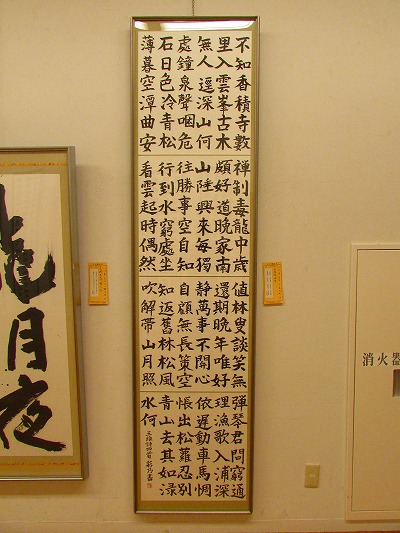 不知香積寺數
里入雲峯古木
無人逕深山何
處鐘泉聲咽危
石日色冷青松
薄暮空潭曲安
禅制毒龍中歳
頗好道晚家南
山陲興來每獨
往勝事空自知
行到水窮處坐
看雲起時偶然
值林叟談笑無
還期晚年唯好
靜萬事不開心
自顧無長策空
知返舊林松風
吹解帶山月照
彈琴君問窮通
理漁歌入浦深
依遲動車馬惆
悵出松蘿忍別
青山去其如淥
水何
王維詩四首
月夜
消火器